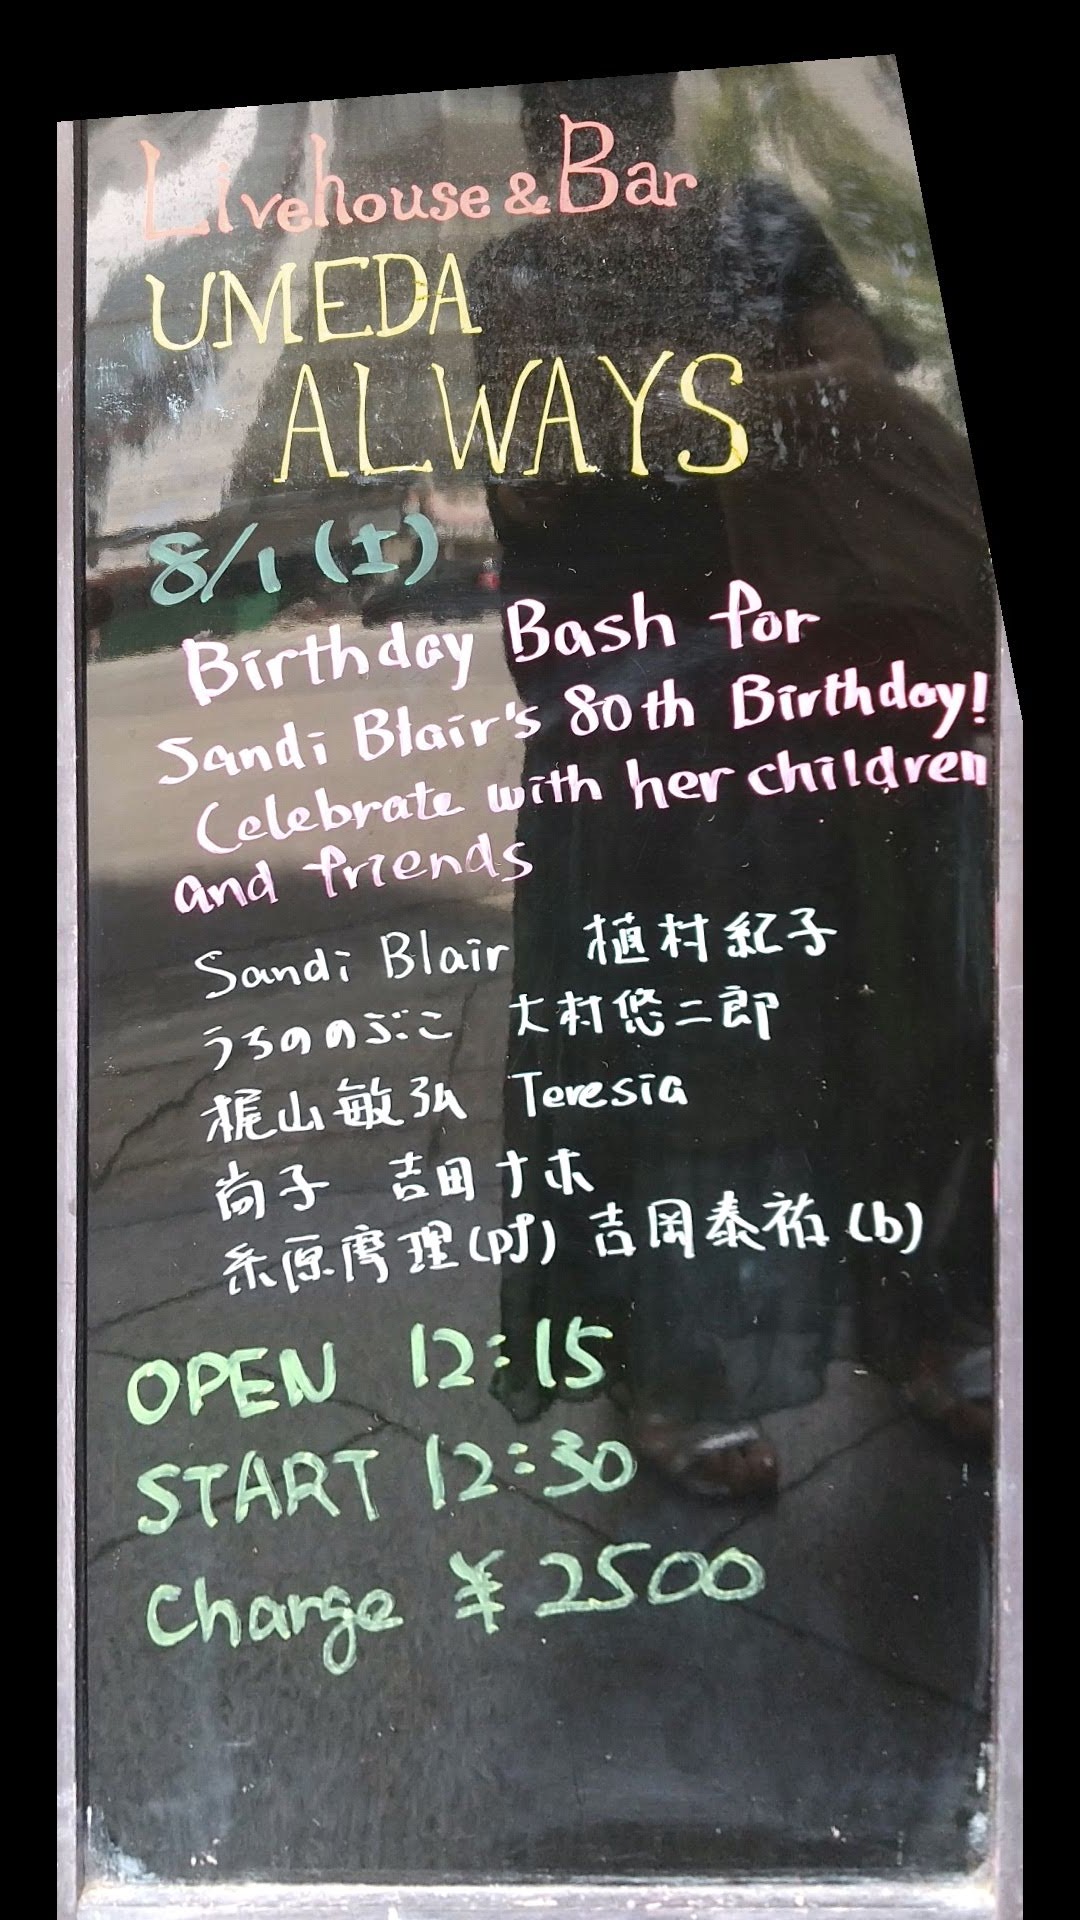 Livehouse & Bar
UMEDA
ALWAYS
8/1 (土)
Birthday Bash for
Sandi Blair's 80th Birthday!
Celebrate with her children
and friends
Sandi Blair 植村紀子
うちののぶこ 大村悠二郎
梶山敏弘 Teresia
尚子 吉田ナホ
糸原摩理(pf) 吉岡泰祐(b)
OPEN 12:15
START 12:30
Charge ¥2500